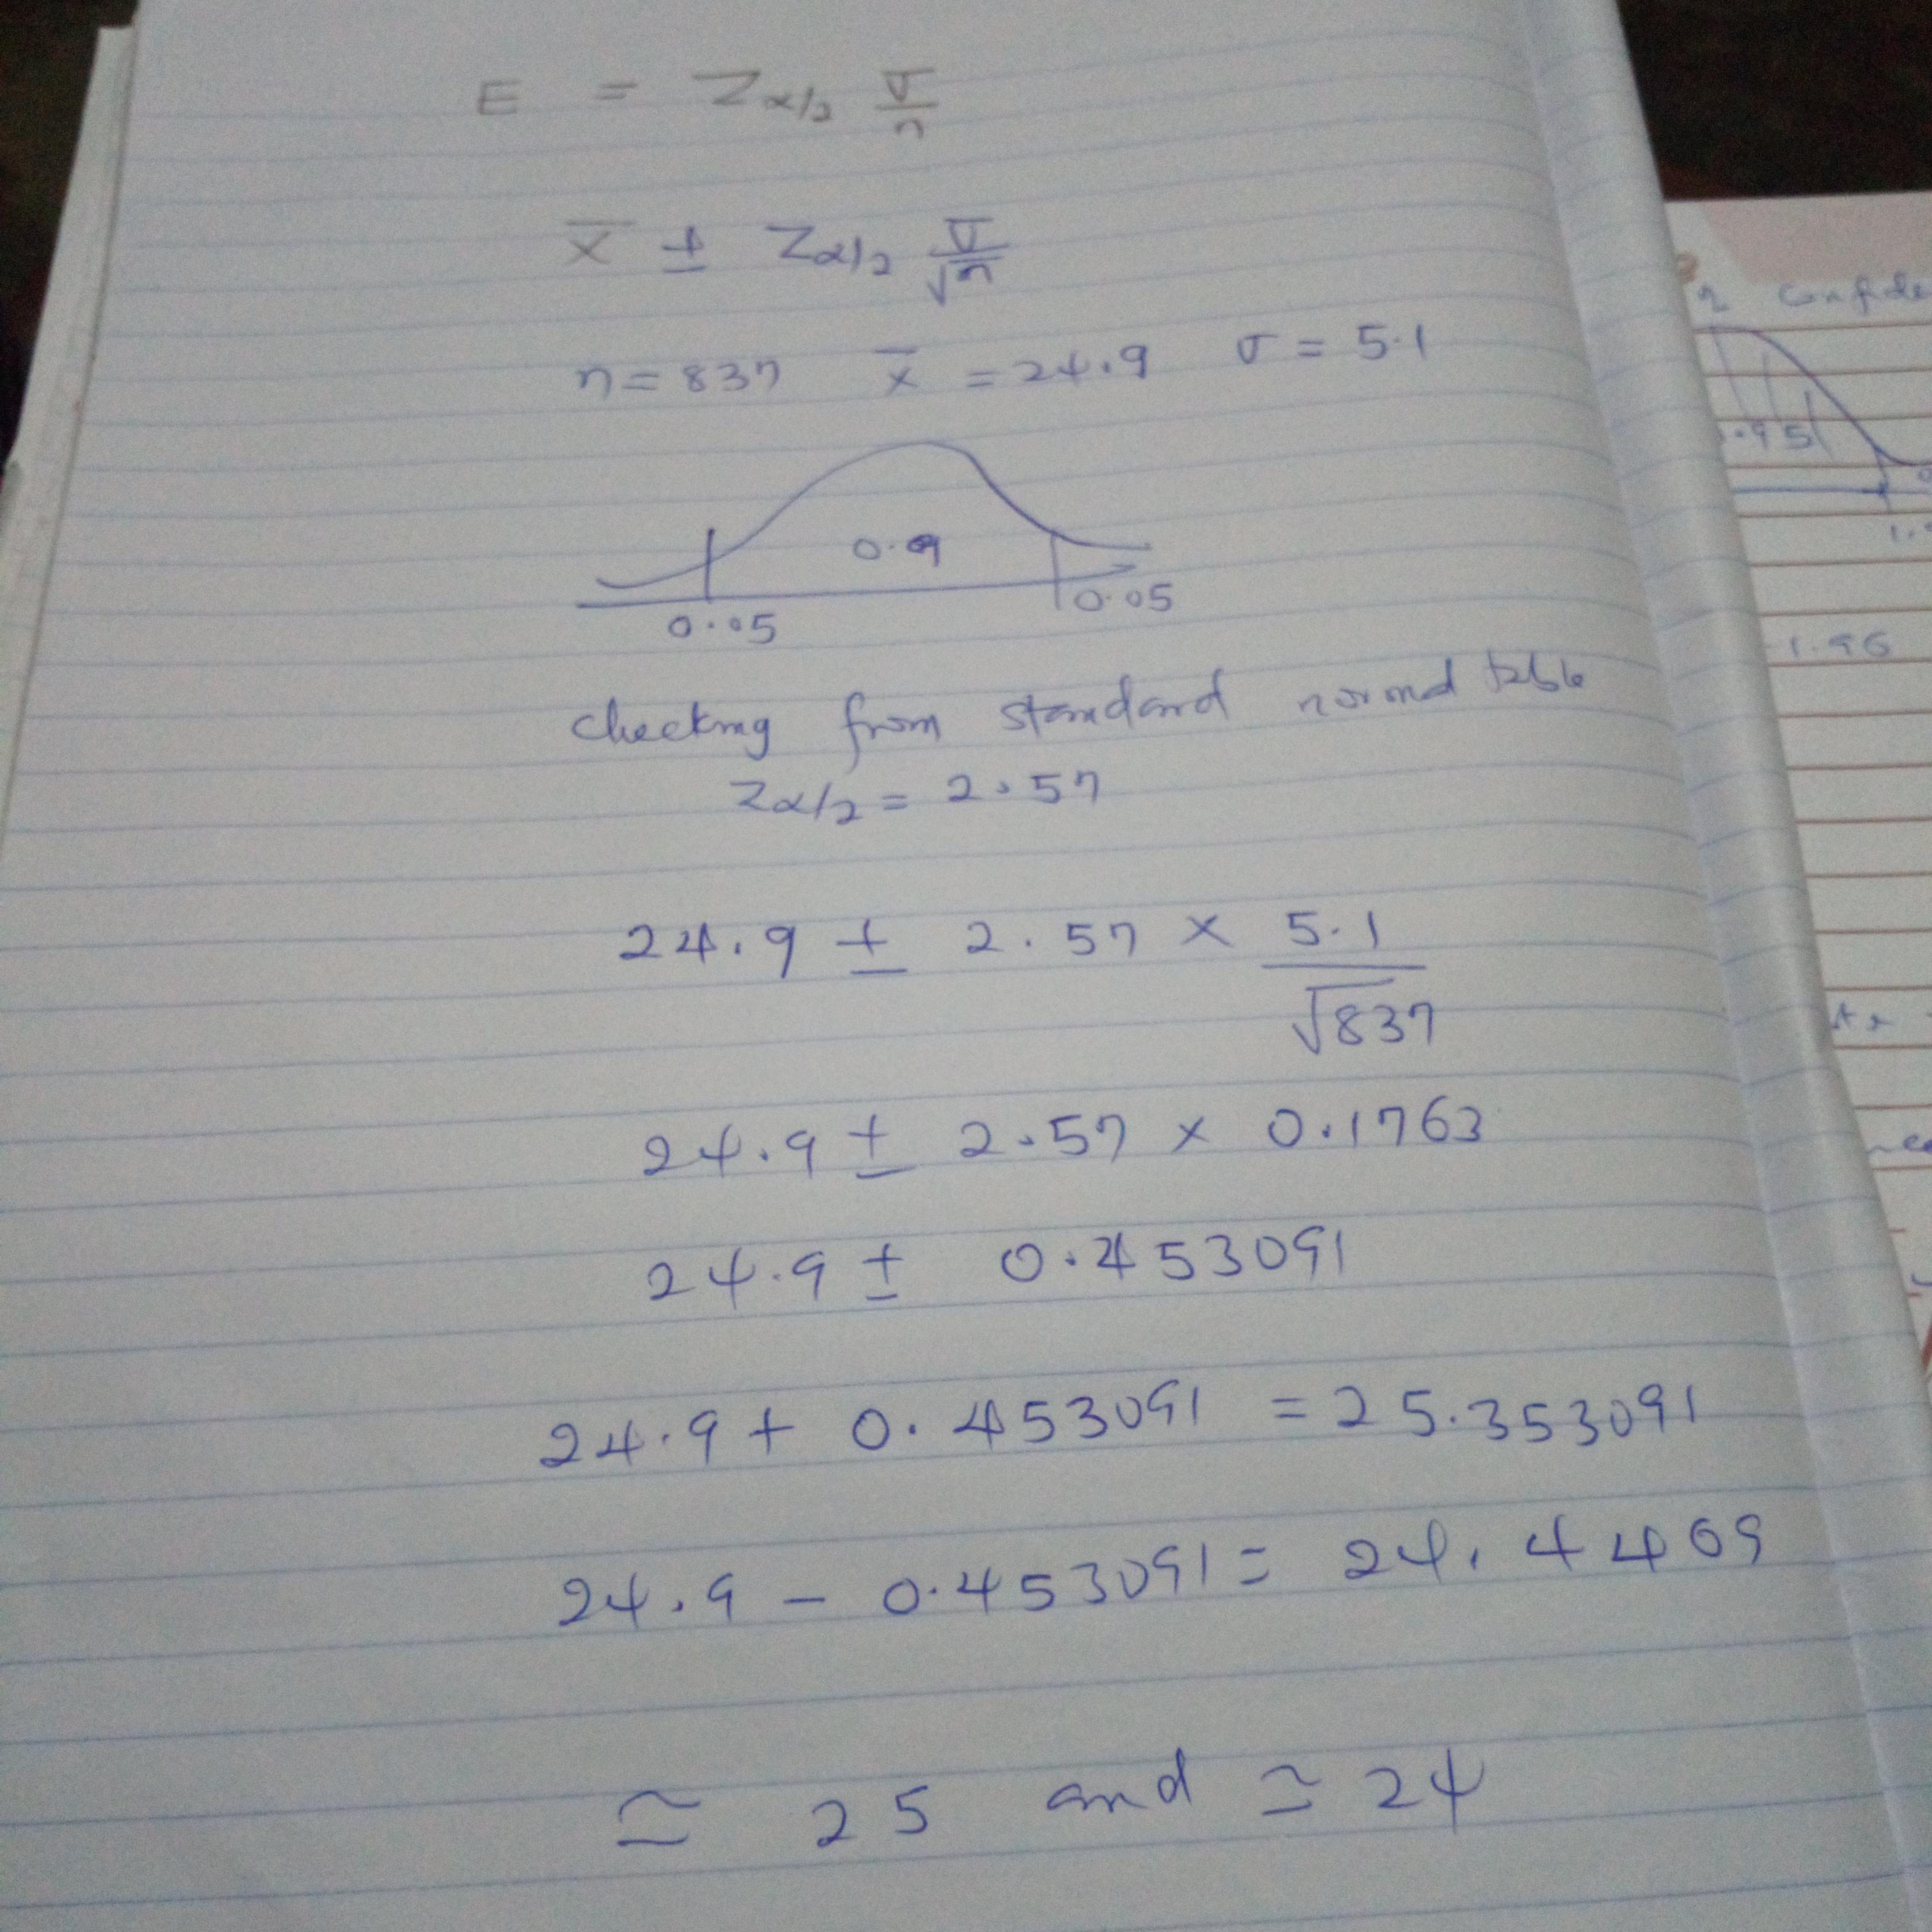 E = Zα/2 σ/n
x̄ ± Zα/2 σ/√n
n = 837 x̄ = 24.9 σ = 5.1
0.9
0.05
0.05
checking from standard normal table
Zα/2 = 2.57
24.9 ± 2.57 × 5.1/√837
24.9 ± 2.57 × 0.1763
24.9 ± 0.453091
24.9 + 0.453091 = 25.353091
24.9 - 0.453091 = 24.4409
≃ 25 and ≃ 24
1.96